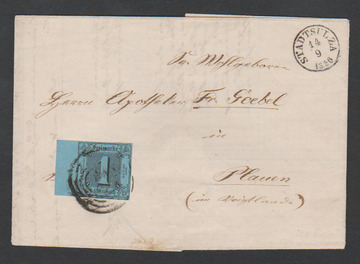 STADTSULZA
14
9
1856
Sr. Wohlgeboren
Herrn Apotheker Fr. Goebel
in
Plauen
(im Voigtlande)
1